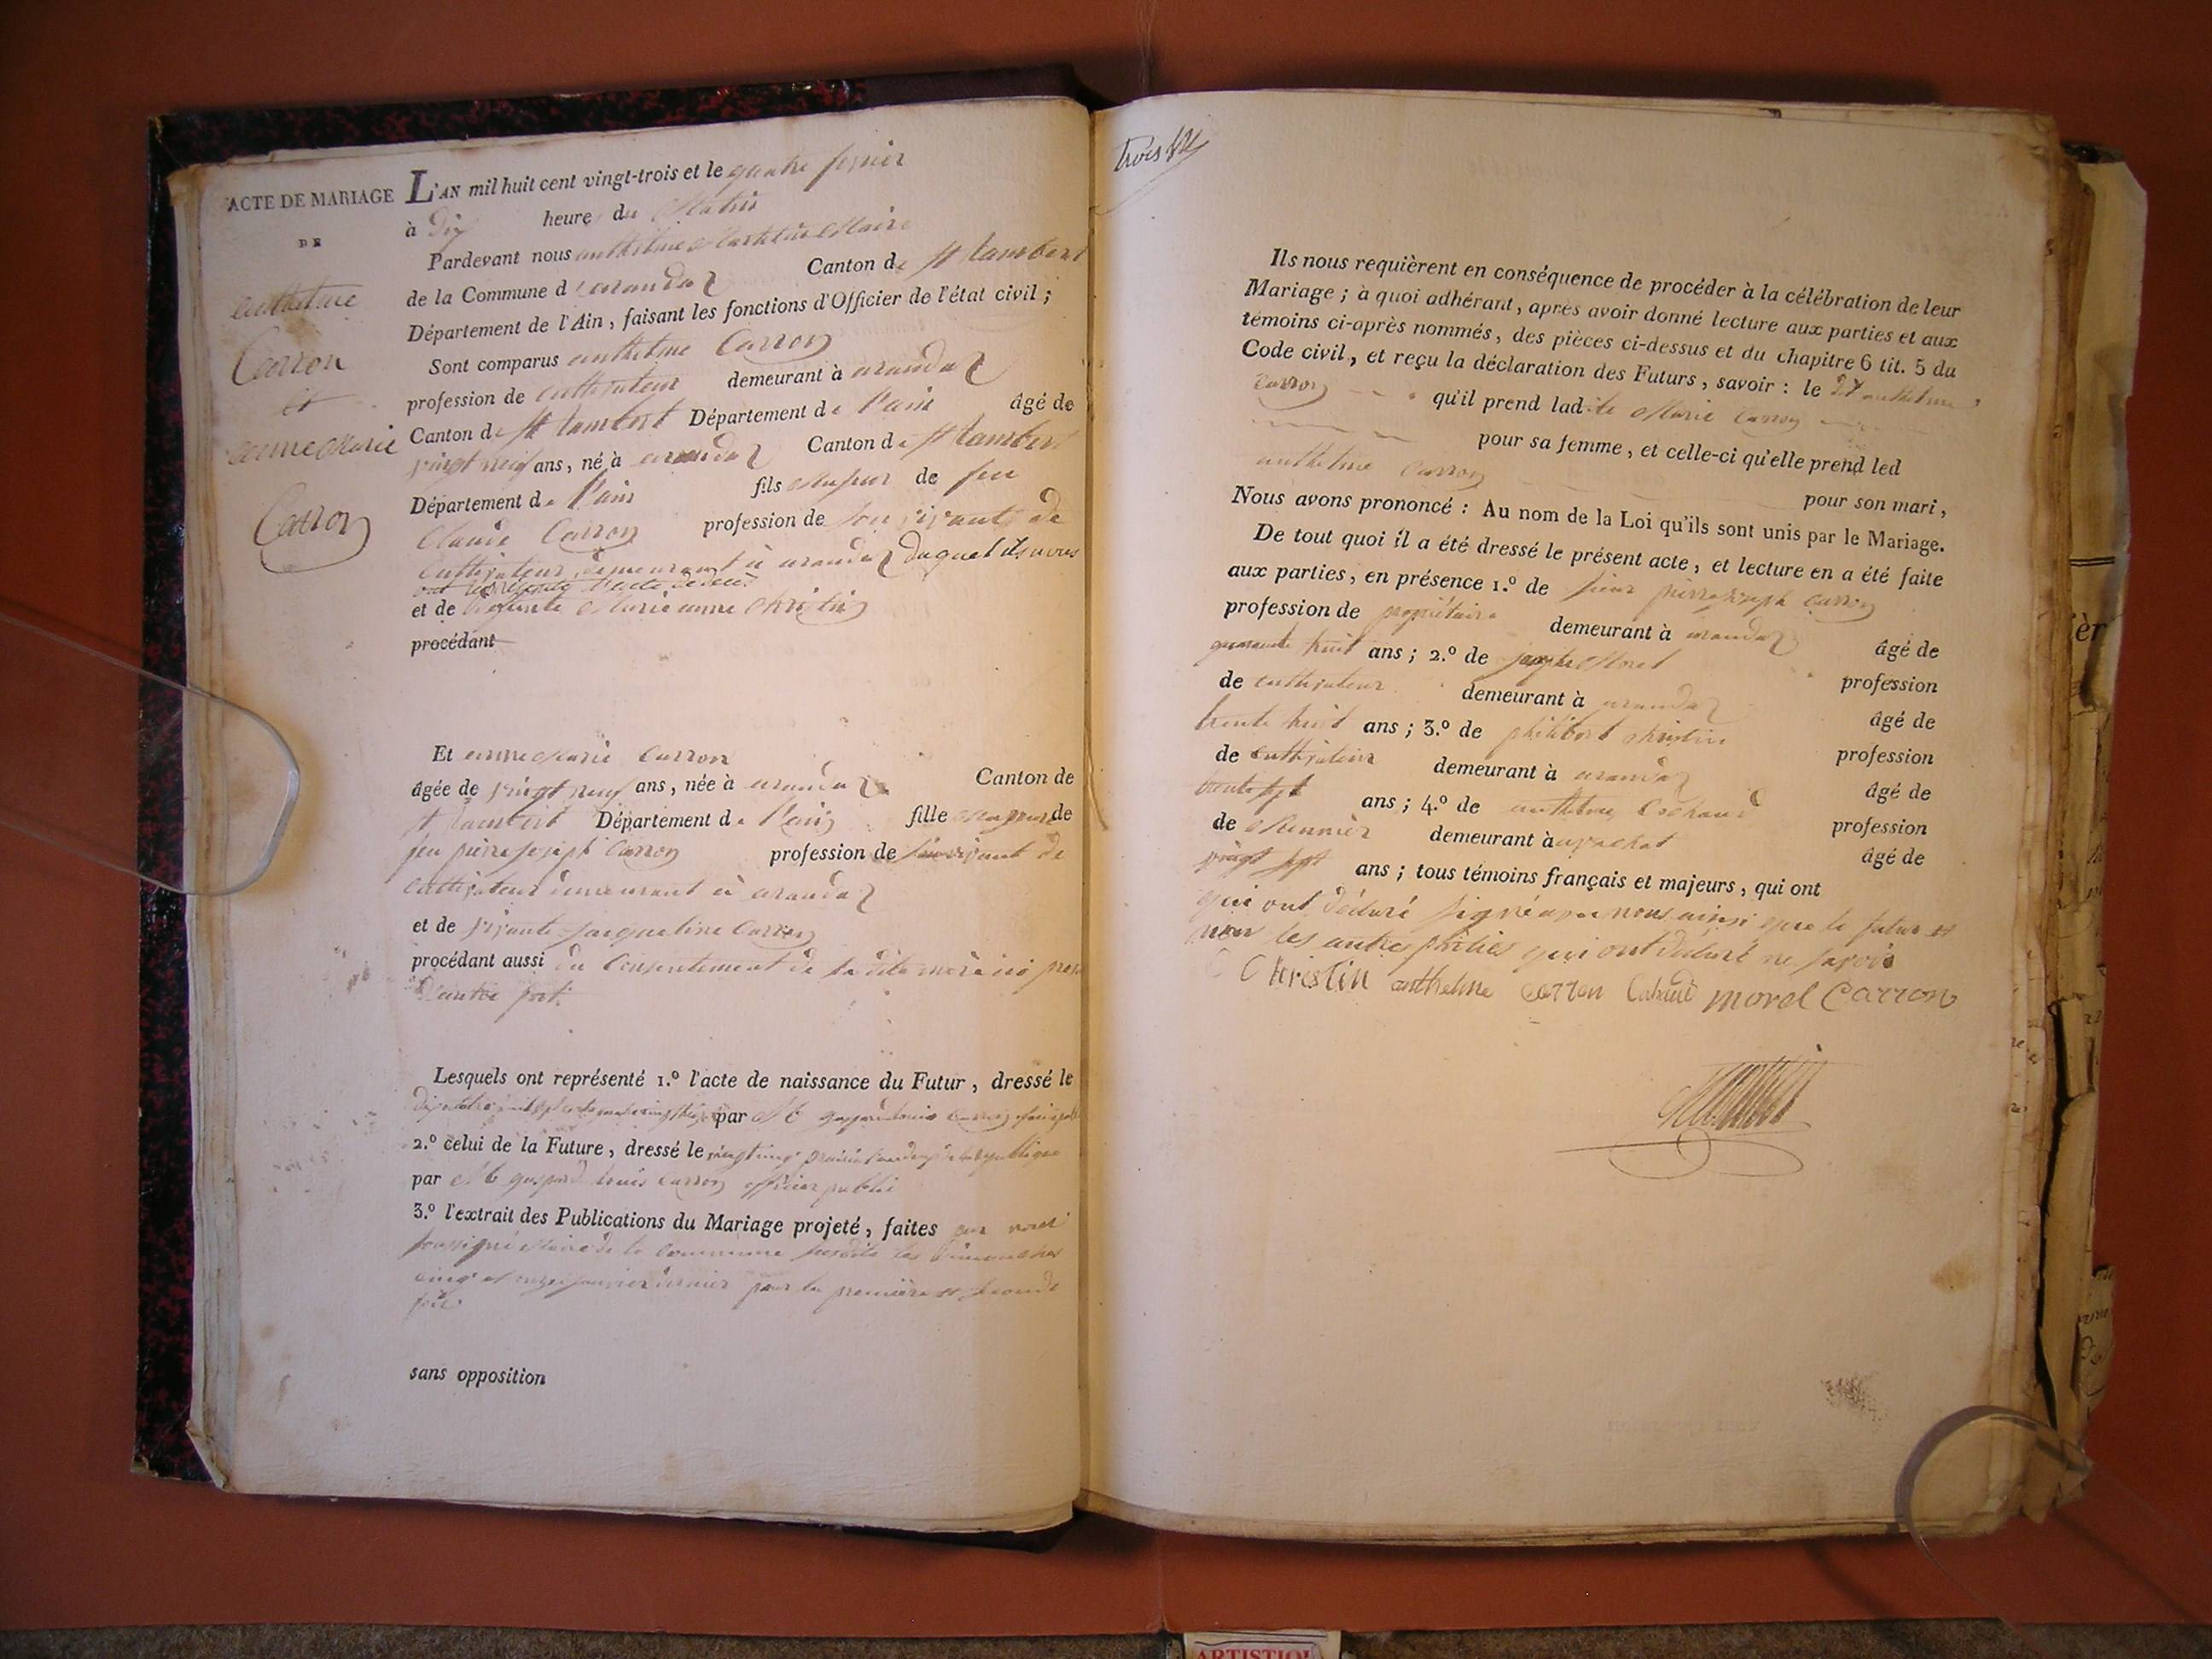 ACTE DE MARIAGE
DE
anthelme
Carron
et
anne Marie
Carron
L'AN mil huit cent vingt-trois et le quatre fevrier
à Dix heures du Matin
Pardevant nous anthelme Maire
de la Commune d'arandaz Canton de St Rambert
Département de l'Ain, faisant les fonctions d'Officier de l'état civil;
Sont comparus anthelme Carron
profession de cultivateur demeurant à arandaz
Canton de St Rambert Département de l'ain âgé de
vingt neuf ans, né à arandaz Canton de St Rambert
Département de l'ain fils majeur de feu
Claude Carron profession de son vivant de
cultivateur demeurant à arandaz duquel ils nous
ont représenté l'acte de décès
et de défunte Marie anne Christin
procédant
Et anne Marie Carron
âgée de vingt neuf ans, née à arandaz Canton de
St Rambert Département de l'ain fille majeure de
feu pierre joseph Carron profession de son vivant de
cultivateur demeurant à arandaz
et de vivante jacqueline Carron
procédant aussi du Consentement de sa dite mère ici
d'autre part
Lesquels ont représenté 1.º l'acte de naissance du Futur, dressé le
par Louis Carron
2.º celui de la Future, dressé le vingt cinq prairial an deux de la république
par gaspard louis Carron officier public
3.º l'extrait des Publications du Mariage projeté, faites par nous
soussigné Maire de la Commune susdite les dimanches
cinq et onze janvier dernier pour la première et seconde
fois
sans opposition
trois
Ils nous requièrent en conséquence de procéder à la célébration de leur
Mariage; à quoi adhérant, après avoir donné lecture aux parties et aux
témoins ci-après nommés, des pièces ci-dessus et du chapitre 6 tit. 5 du
Code civil, et reçu la déclaration des Futurs, savoir: le dt anthelme
Carron qu'il prend lad. te Marie Carron
pour sa femme, et celle-ci qu'elle prend led
anthelme Carron pour son mari,
Nous avons prononcé: Au nom de la Loi qu'ils sont unis par le Mariage.
De tout quoi il a été dressé le présent acte, et lecture en a été faite
aux parties, en présence 1.º de sieur pierre joseph Carron
profession de propriétaire demeurant à arandaz âgé de
quarante huit ans; 2.º de joseph Morel profession
de cultivateur demeurant à arandaz âgé de
trente huit ans; 3.º de philibert christin profession
de cultivateur demeurant à arandaz âgé de
trente sept ans; 4.º de anthelme Cochaud profession
de Meunier demeurant à âgé de
vingt sept ans; tous témoins français et majeurs, qui ont
qui ont déclaré signé avec nous ainsi que le futur et
non les autres parties qui ont déclaré ne savoir
Christin anthelme carron morel Carron